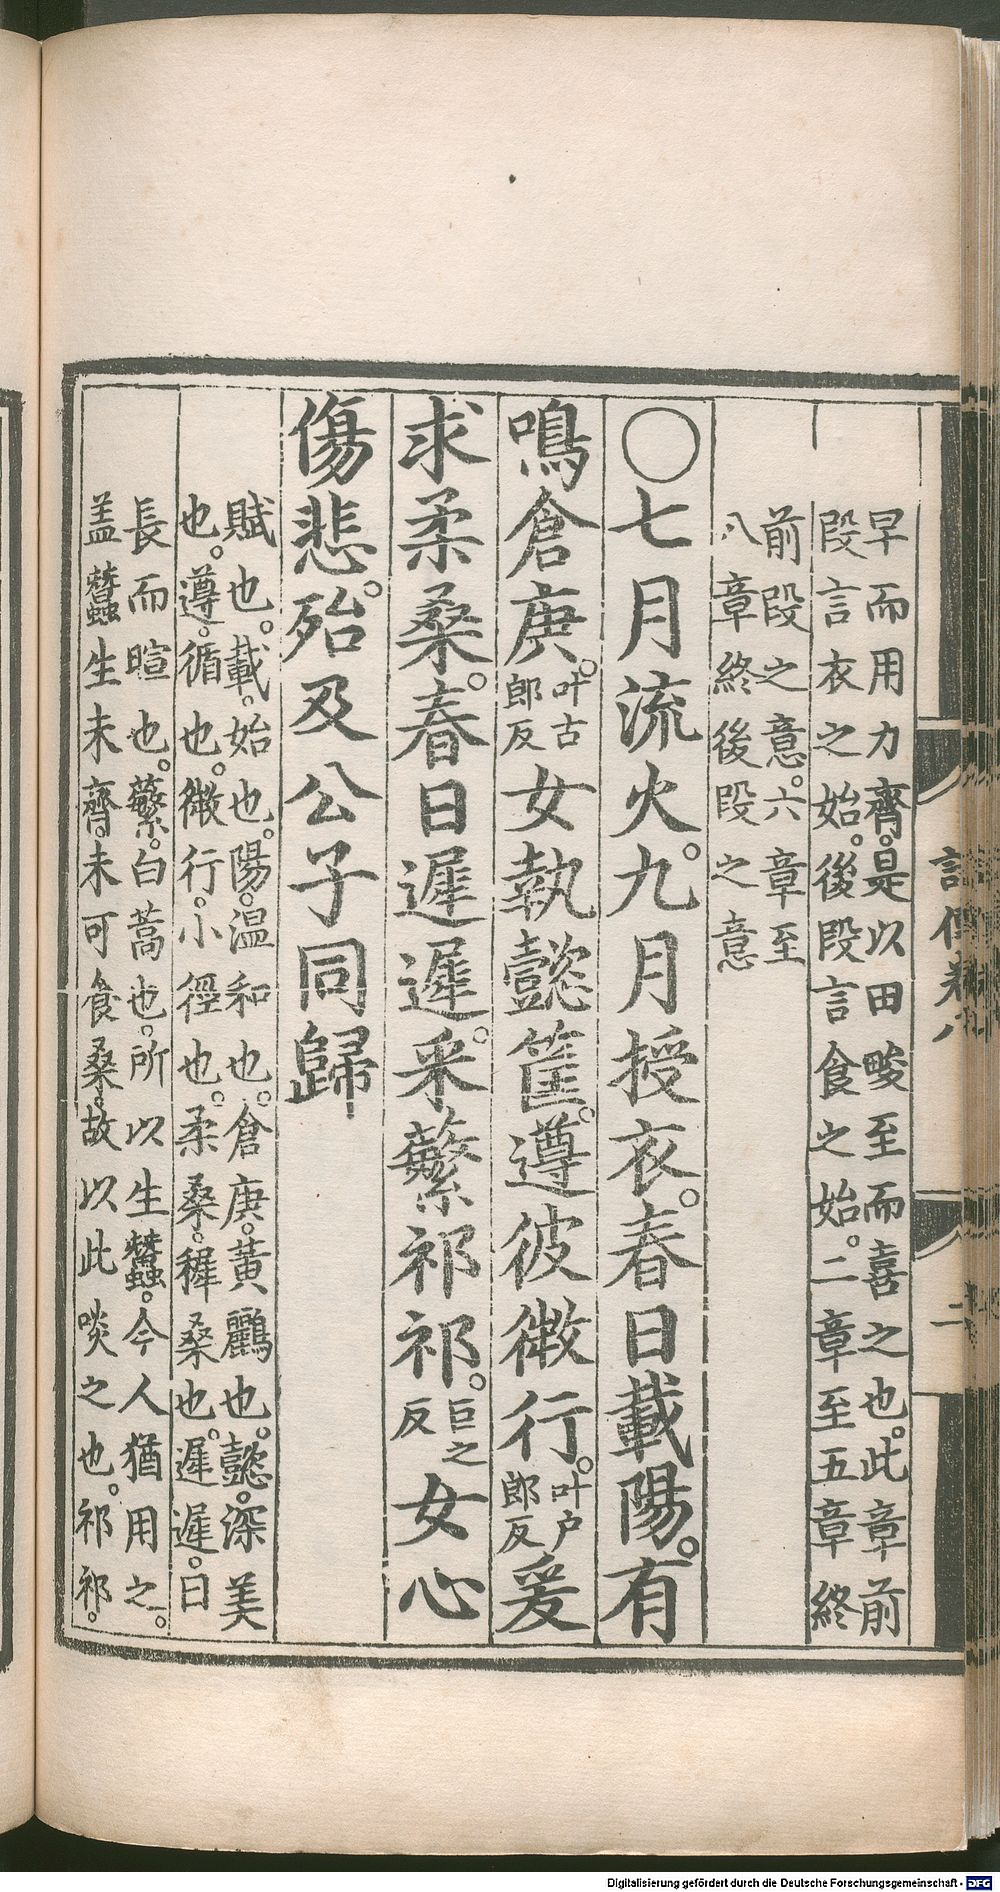 早而用力齊。是以田畯至而喜之也。此章前
段言衣之始。後段言食之始。二章至五章終
前段之意。六章至
八章終後段之意
〇七月流火。九月授衣。春日載陽。有
鳴倉庚。叶古郎反女執懿筐。遵彼微行。叶户郎反爰
求柔桑。春日遲遲。采蘩祁祁。巨之反女心
傷悲。殆及公子同歸
賦也。載。始也。陽。温和也。倉庚。黃鸝也。懿。深美
也。遵。循也。微行。小徑也。柔桑。穉桑也。遲遲。日
長而暄也。蘩。白蒿也。所以生蠶。今人猶用之。
盖蠶生未齊。未可食桑。故以此啖之也。祁祁。
詩傳卷八
二
Digitalisierung gefördert durch die Deutsche Forschungsgemeinschaft - DFG